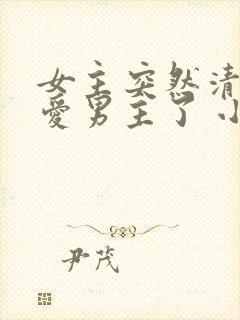 女主突然清
爱男主了小
尹茂